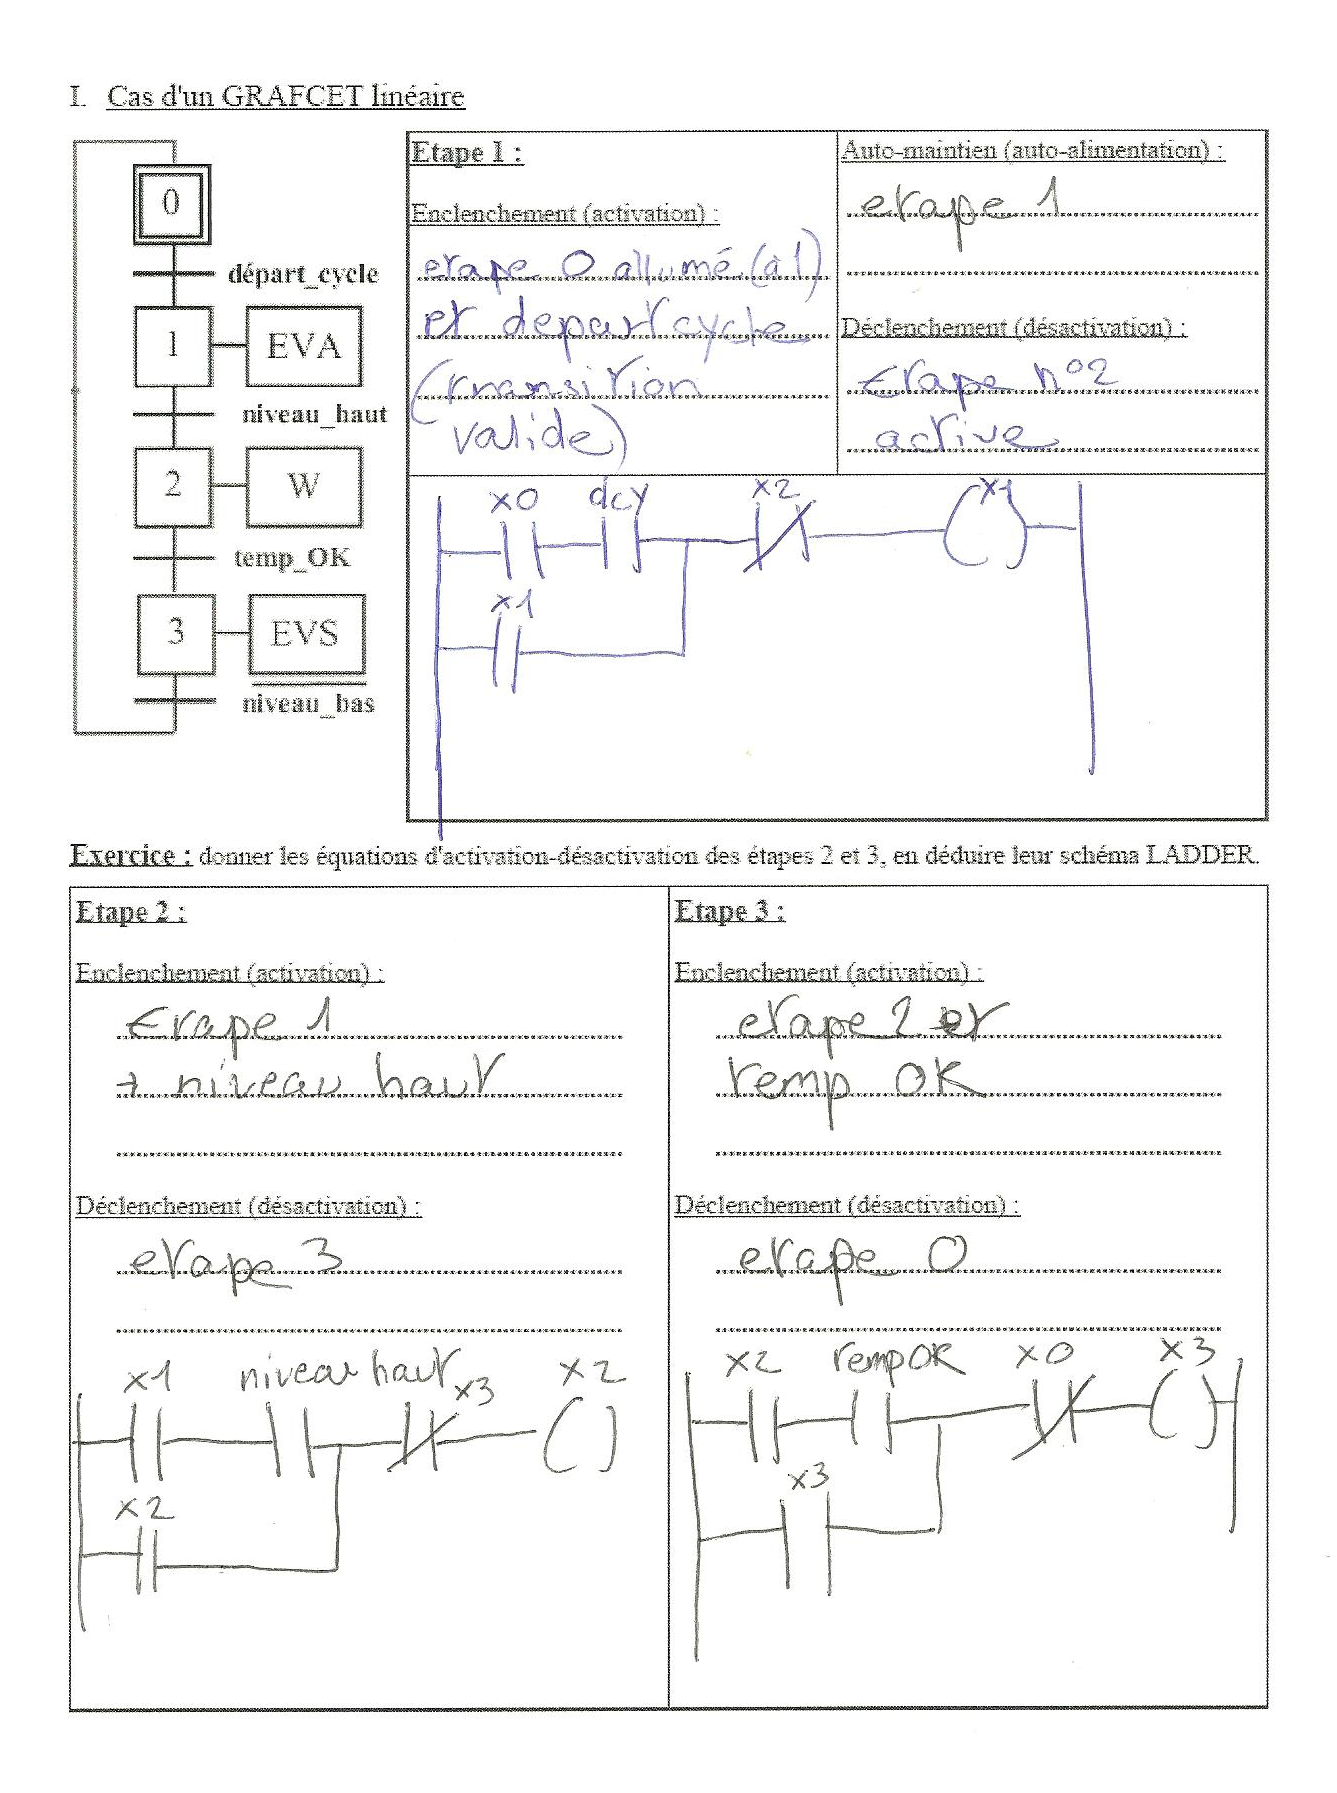 I. Cas d'un GRAFCET linéaire
0
départ_cycle
1
EVA
niveau_haut
2
W
temp_OK
3
EVS
niveau_bas
Etape 1 :
Enclenchement (activation) :
etape 0 allumé (à 1)
et depart cycle
(transition
valide)
Auto-maintien (auto-alimentation) :
etape 1
Déclenchement (désactivation) :
Etape n°2
active
x0 dcy x2 x1
x1
Exercice : donner les équations d'activation-désactivation des étapes 2 et 3, en déduire leur schéma LADDER.
Etape 2 :
Enclenchement (activation) :
Etape 1
+ niveau haut
Déclenchement (désactivation) :
etape 3
x1 niveau haut x3 x2
x2
Etape 3 :
Enclenchement (activation) :
etape 2 et
temp OK
Déclenchement (désactivation) :
etape 0
x2 temp OK x0 x3
x3